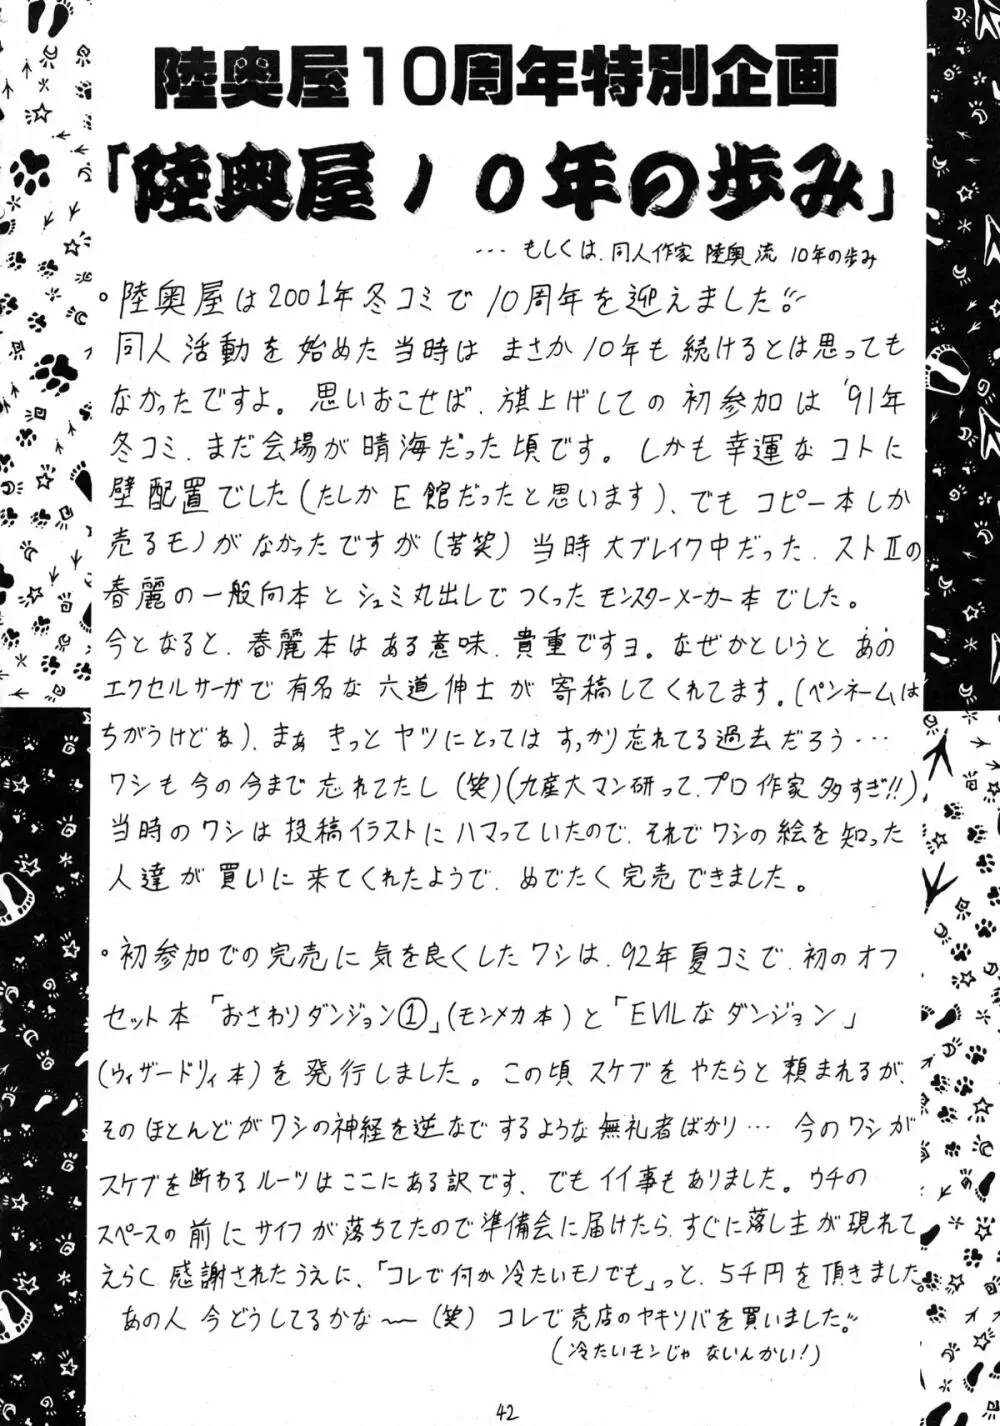 陸奥屋10周年特別企画
「陸奥屋10年の歩み」
・・・もしくは、同人作家 陸奥流 10年の歩み
。陸奥屋は2001年冬コミで10周年を迎えました!!
同人活動を始めた当時は まさか10年も続けるとは思っても
なかったですよ。思いおこせば、旗上げしての初参加は'91年
冬コミ、まだ会場が晴海だった頃です。しかも幸運なコトに
壁配置でした(たしかE館だったと思います)、でもコピー本しか
売るモノがなかったですが(苦笑)当時大ブレイク中だった、ストⅡの
春麗の一般向本とシュミ丸出しでつくったモンスターメーカー本でした。
今となると、春麗本はある意味、貴重ですヨ。なぜかというと あの
エクセルサーガで有名な六道伸士が寄稿してくれてます。(ペンネームは
ちがうけどね)、まぁ きっとヤツにとっては すっかり忘れてる過去だろう・・・
ワシも今の今まで忘れてたし(笑)(九産大マン研って、プロ作家多すぎ!!)
当時のワシは投稿イラストにハマっていたので、それでワシの絵を知った
人達が買いに来てくれたようで、めでたく完売できました。
。初参加での完売に気を良くしたワシは、92年夏コミで、初のオフ
セット本「おさわりダンジョン①」(モンメカ本)と「EVILなダンジョン」
(ウィザードリィ本)を発行しました。この頃スケブをやたらと頼まれるが、
そのほとんどがワシの神経を逆なでするような無礼者ばかり・・・ 今のワシが
スケブを断わるルーツはここにある訳です、でもイイ事もありました。ウチの
スペースの前にサイフが落ちてたので準備会に届けたら、すぐに落し主が現れて
えらく感謝されたうえに、「コレで何か冷たいモノでも」っと、5千円を頂きました。
あの人 今どうしてるかな〜(笑) コレで売店のヤキソバを買いました!!
(冷たいモンじゃ ないんかい!)
42